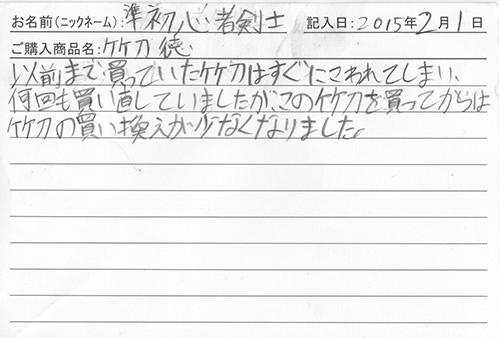 お名前(ニックネーム):準初心者剣士 記入日:2015年2月1日
ご購入商品名:竹刀 徳
以前まで買っていた竹刀はすぐにこわれてしまい、
何回も買い直していましたが、この竹刀を買ってからは
竹刀の買い換えが少なくなりました。